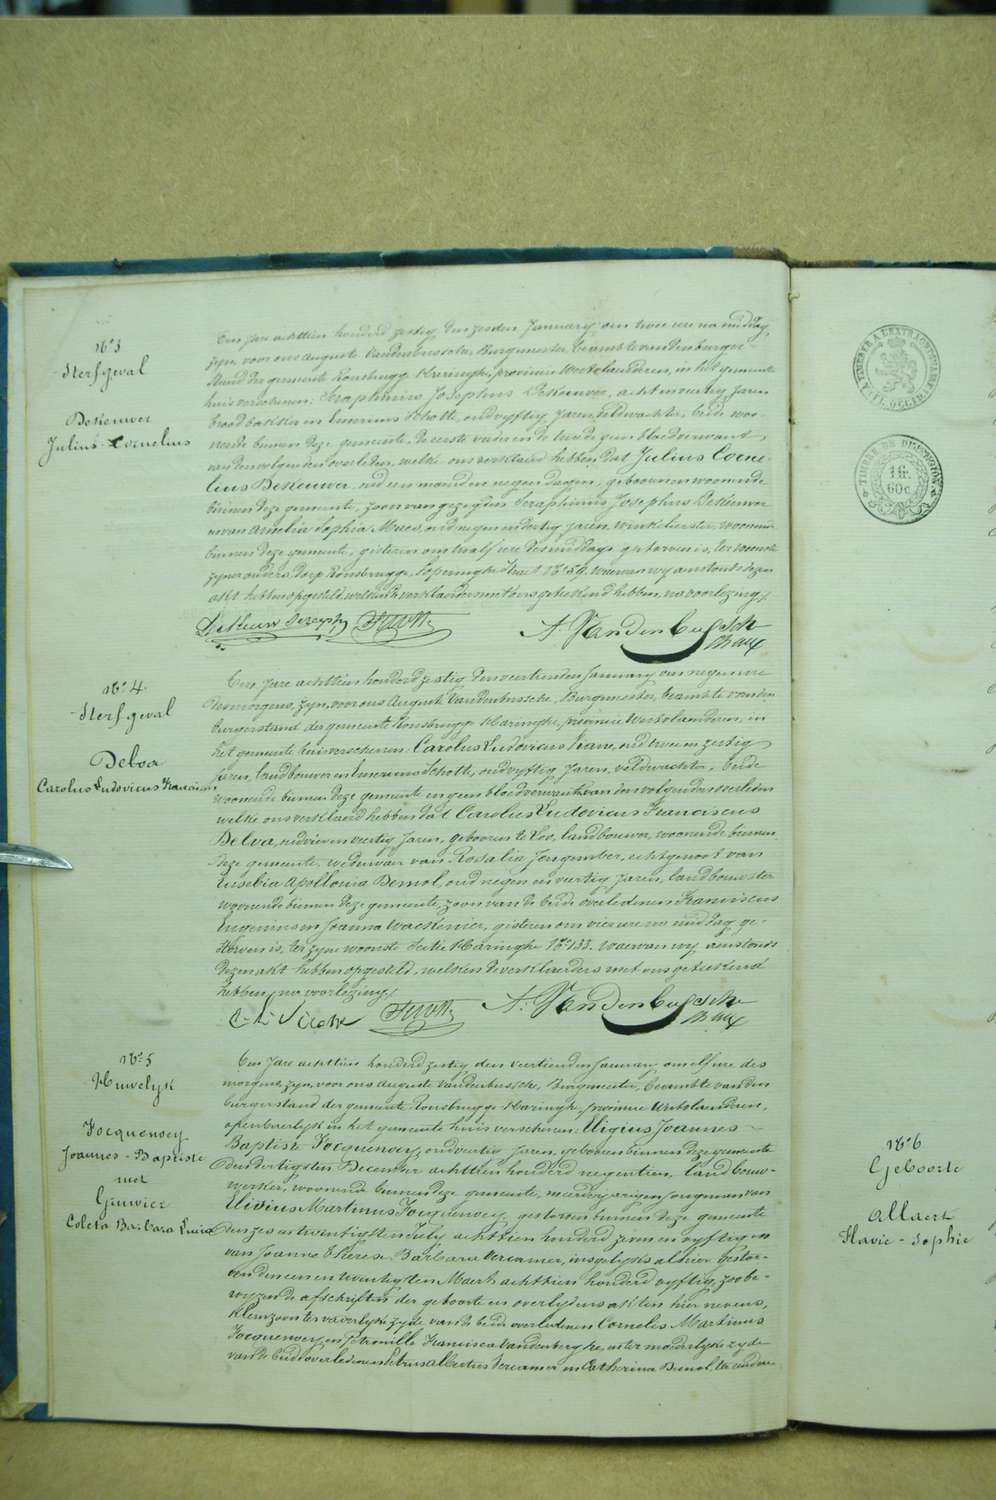 N° 3
Sterfgeval
Dekeuwer
Julius-Cornelius
Een jare achttien honderd zestig den zesden January, om twee ure na middag,
zyn, voor ons Auguste Vandenbussche, Burgmeester, beambte van den burger-
stand der gemeente Rousbrugge Haringhe, provincie Westvlaanderen, in het gemeente
huis verschenen: Seraphinus Josephus Dekeuwer, acht en veertig jaren
brood bakker en Lieven Schotte, oud vyftig jaren, veldwachter, beide woo-
nende binnen deze gemeente, de eerste vader en de tweede geen bloedverwant
van den volgenden overleden, welke ons verklaerd hebben dat Julius Corne-
lius Dekeuwer, oud een maand en negen dagen, geboren en woonende
binnen deze gemeente, zoon van gezegden Seraphinus Josephus Dekeuwer
en van Amelia Sophia Maes, oud negen en dertig jaren, winkelierster, woonende
binnen deze gemeente, gisteren om half ure des middags gestorven is, ter woonste
zyner ouders dorp Rousbrugge, Poperinghe straet N° 50. Waervan wy aenstonds dezen
akt hebben opgesteld, welken de verklaerders met ons geteekend hebben, na voorlezing
A. Vandenbussche
N° 4
Sterfgeval
Delva
Carolus Ludovicus Franciscus
Een jare achttien honderd zestig den veertienden January om negen ure
des morgens, zyn, voor ons August Vandenbussche, Burgmeester, beambte van den
burgerstand der gemeente Rousbrugge Haringhe, provincie Westvlaanderen, in
het gemeente huis verschenen: Carolus Ludovicus Viane, oud twee en zestig
jaren, landbouwer en Schotte, oud vyftig jaren, veldwachter, beide
woonende binnen deze gemeente en geen bloedverwant van den volgenden overleden
welke ons verklaerd hebben dat Carolus Ludovicus Franciscus
Delva, oud vier en veertig jaren, geboren te Loo, landbouwer, woonende binnen
deze gemeente, weduwaer van Rosalia echtgenoot van
Eusebia Apollonia Demol, oud negen en veertig jaren, landbouwster
woonende binnen deze gemeente, zoon van de beide overledenen Franciscus
Eugenius en Joanna gisteren om vier ure na middag ge-
storven is, ter zyne woonste Haringhe N° 133. Waervan wy aenstonds
dezen akt hebben opgesteld, welken de verklaerders met ons geteekend
hebben, na voorlezing
A. Vandenbussche
N° 5
Huwelyk
Jocquenoey
Joannes-Baptiste
met
Coleta Barbara Lucia
Een jare achttien honderd zestig den veertienden January om elf ure des
morgens, zyn, voor ons Auguste Vandenbussche, Burgmeester, beambte van den
burgerstand der gemeente Rousbrugge Haringhe, provincie Westvlaanderen,
openbaerlyk in het gemeente huis verschenen: Eligius Joannes
Baptiste Jocquenoey, oud veertig jaren, geboren binnen deze gemeente
den dertigsten December achttien honderd negentien, landbouw-
werker, woonende binnen deze gemeente, meerderjarigen jongman van
Elivius Martinus Jocquenoey, gestorven binnen deze gemeente
den zes en twintigsten July achttien honderd zeven en vyftig en
van Joanne Therese Barbara Vercamer, insgelyks alhier gestor-
ven den een en twintigsten Maert achttien honderd vyftig, zoo be-
wyzen de afschriften der geboorte en overlydens akten hier nevens,
kleinzoon ter vaderlyke zyde van de beide overledenen Cornelis Martinus
Jocquenoey en Petronille Francisca Vandenberghe, en ter moederlyke zyde
van de beide overledenen Petrus Albertus Vercamer en Catherina Demol, ter eendere
A TIMBRER A L'EXTRAORDINAIRE
FL. OCCID.
TIMBRE DE DIMENSION
1 fr.
60 c.
N° 6
Geboorte
Allaert
Flavie-Sophie